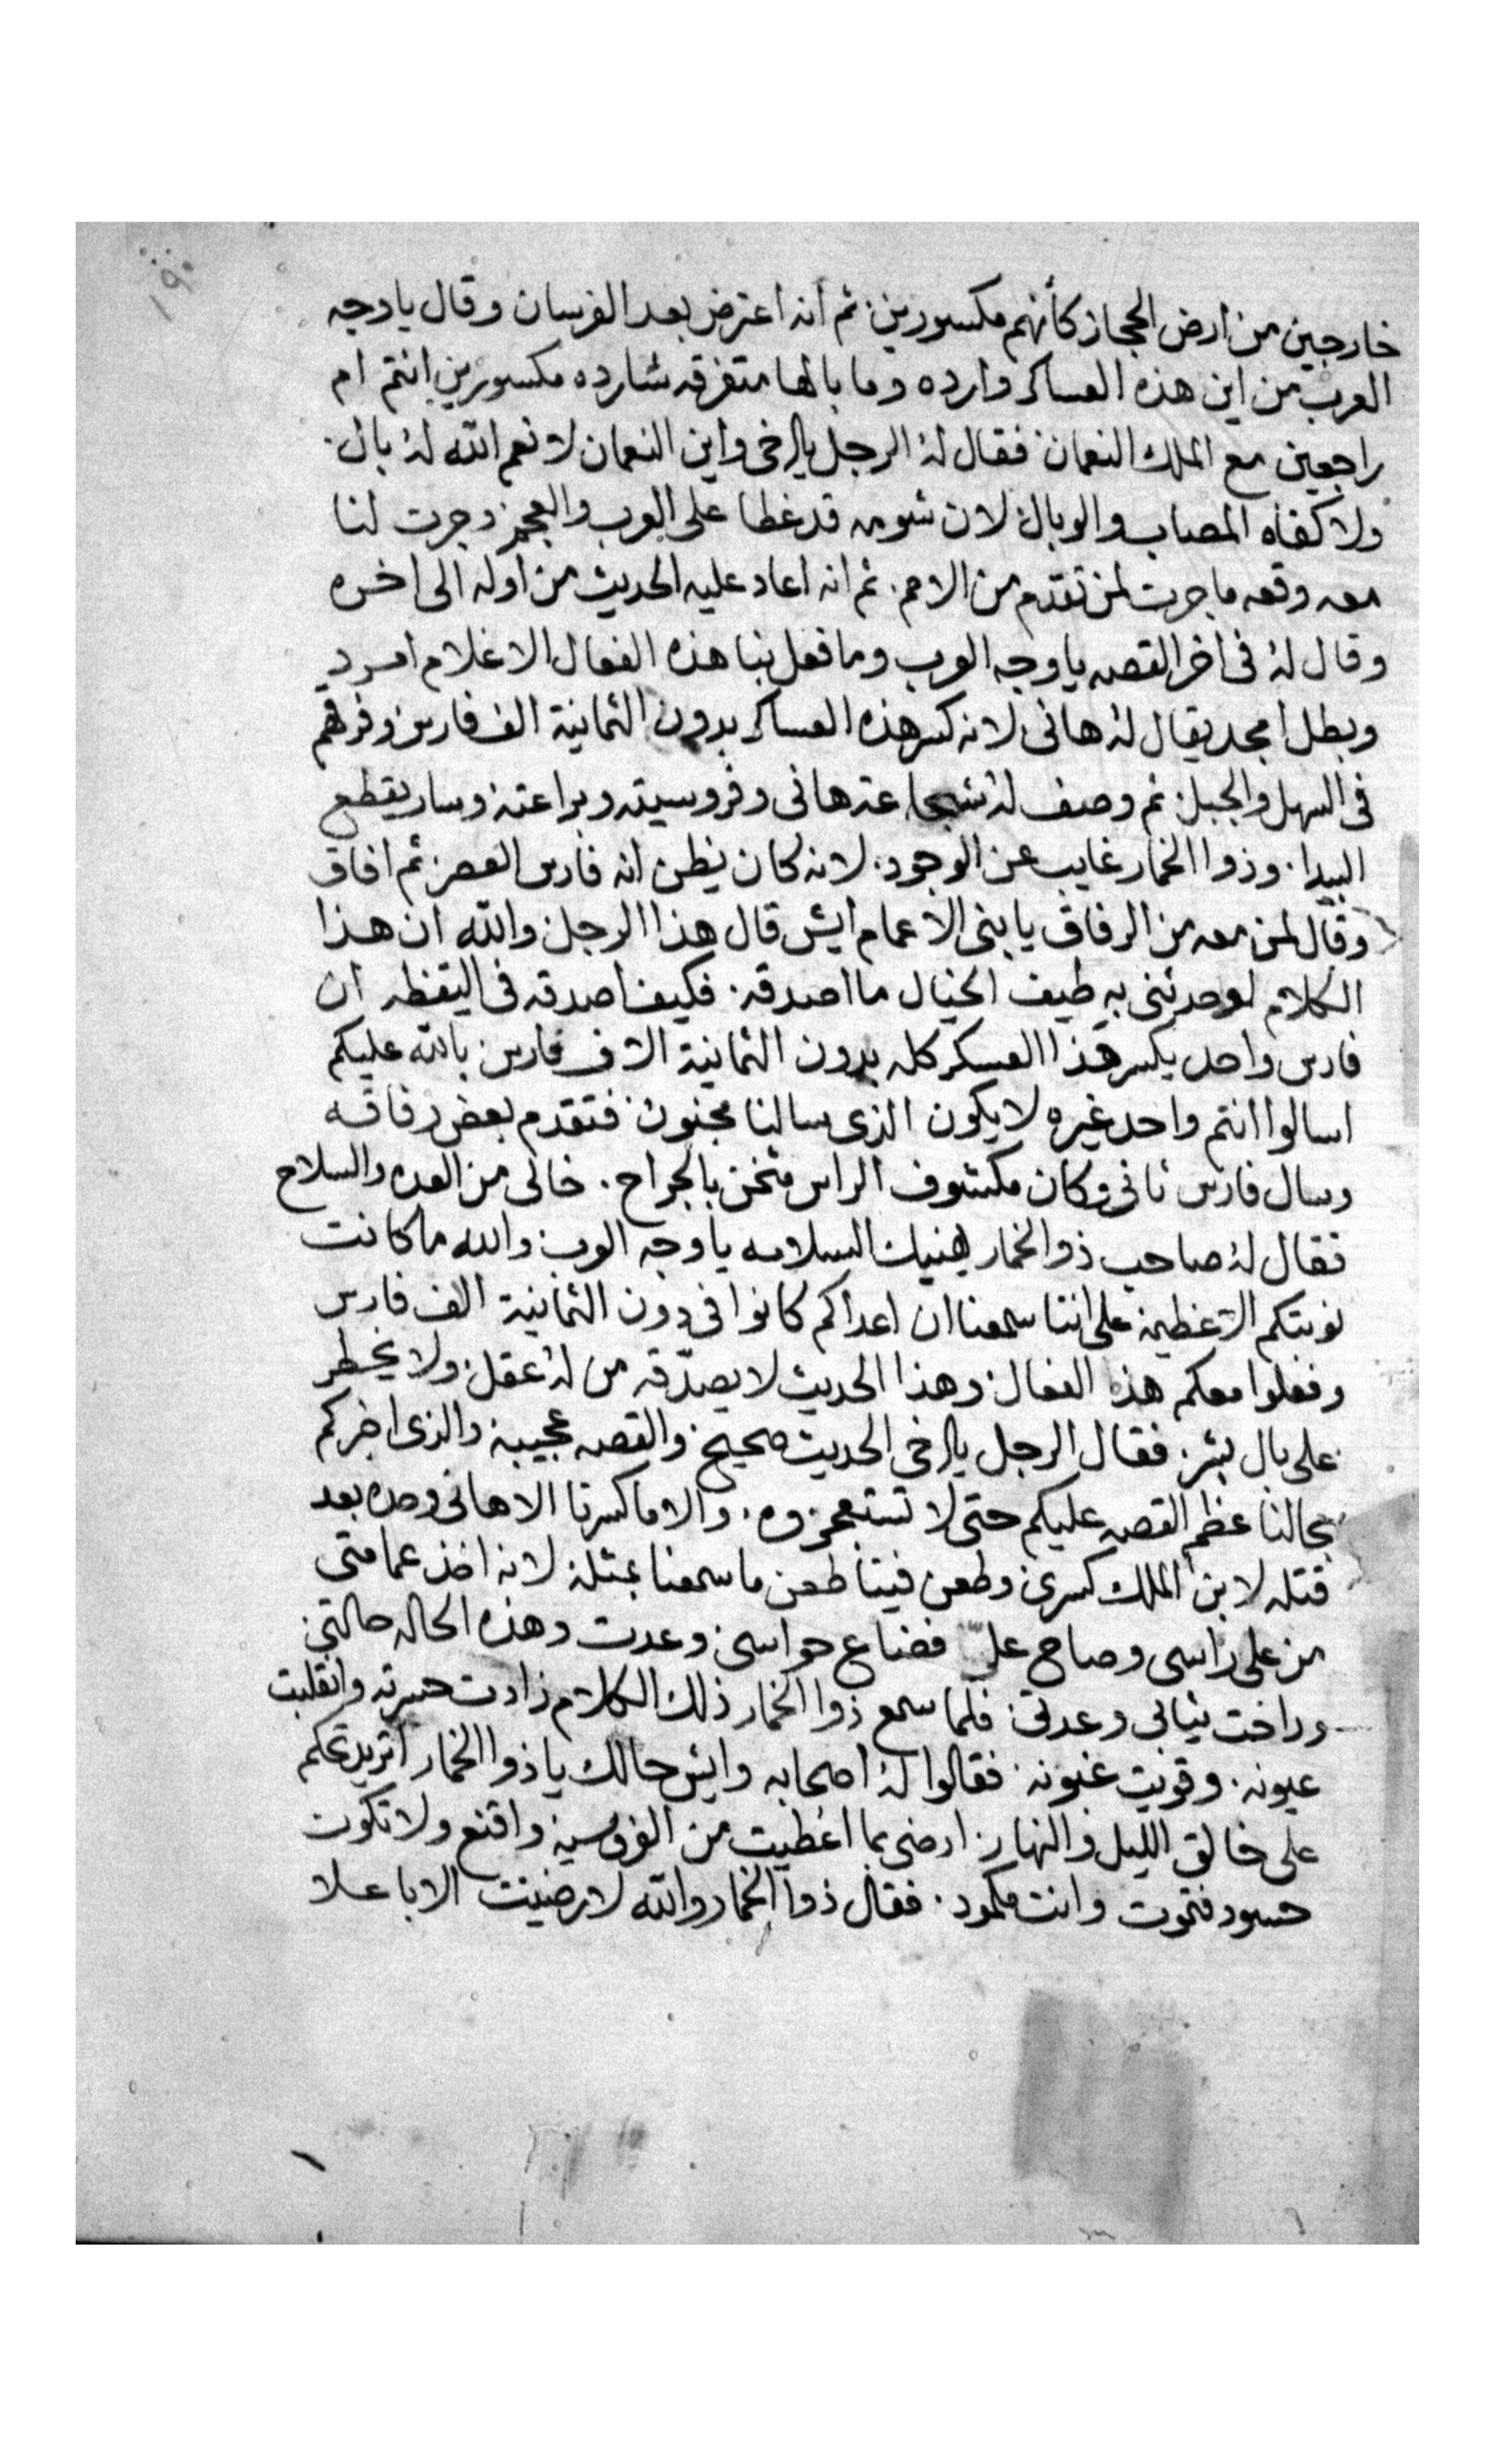 ١٩٠
خارجين من ارض الحجاز كأنهم مكسورين ثم أنه اعترض بعد الفرسان وقال يا وجه
العرب من اين هذه العساكر وارده وما بالها متفرقه شارده مكسورين انتم ام
راجعين مع الملك النعمان فقال لهُ الرجل يا اخي واين النعمان لا نعم الله لهُ بال
ولا كفاه المصاب والوبال لان شومه قد غطا على العرب والعجم وجرت لنا
معه وقعه ما جرت لمن تقدم من الامم. ثم انه اعاد عليه الحديث من اوله الى اخره
وقال لهُ في اخر القصه يا وجه العرب وما فعل بنا هذه الفعال الا غلام امرد
وبطل امجد يقال لهُ هاني لانه كسر هذه العساكر بدون الثمانية الف فارس وفرقهم
في السهل والجبل ثم وصف لهُ شجاعة هاني وفروسيته وبراعته وسار يقطع
البيدا. وذوا الخمار غايب عن الوجود. لانه كان يظن انه فارس العصر ثم افاق
وقال لمن معه من الرفاق يا بني الاعمام ايش قال هذا الرجل والله ان هذا
الكلام لو حدثني به طيف الخيال ما اصدقه. فكيف اصدقه في اليقظه ان
فارس واحد يكسر هذا العسكر كله بدون الثمانية الاف فارس بالله عليكم
اسالوا انتم واحد غيره لا يكون الذي سالنا مجنون فتقدم بعض رفاقه
وسال فارس ثاني وكان مكشوف الراس مثخن بالجراح. خالى من العده والسلاح
فقال لهُ صاحب ذو الخمار يهنيك السلامه يا وجه العرب والله ما كانت
نوبتكم الا عظيمه على اننا سمعنا ان اعداكم كانوا في دون الثمانية الف فارس
وفعلوا معكم هذه الفعال وهذا الحديث لا يصدّقه من لهُ عقل ولا يخطر
على بال بشر. فقال الرجل يا اخي الحديث صحيح والقصه عجيبه والذي اخبركم
بحالنا عظم القصه عليكم حتى لا تستعجزوه. والا ما كسرنا الا هاني وحده بعد
قتله لابن الملك كسرى وطعن فينا طعن ما سمعنا بمثله لانه اخذ عمامتي
من على راسي وصاح عليّ فضاع حواسي وعدت وهذه الحاله حالتي
وراحت ثيابي وعدتي فلما سمع ذوا الخمار ذلك الكلام زادت حسرته وانقلبت
عيونه. وقويت غبونه. فقالوا لهُ اصحابه وايش حالك يا ذوا الخمار اتريد تحكم
على خالق الليل والنهار ارضى بما اعطيت من الفروسيه واقنع ولا تكون
حسود فتموت وانت مكمود. فقال ذوا الخمار والله لا رضيت الا باعلا